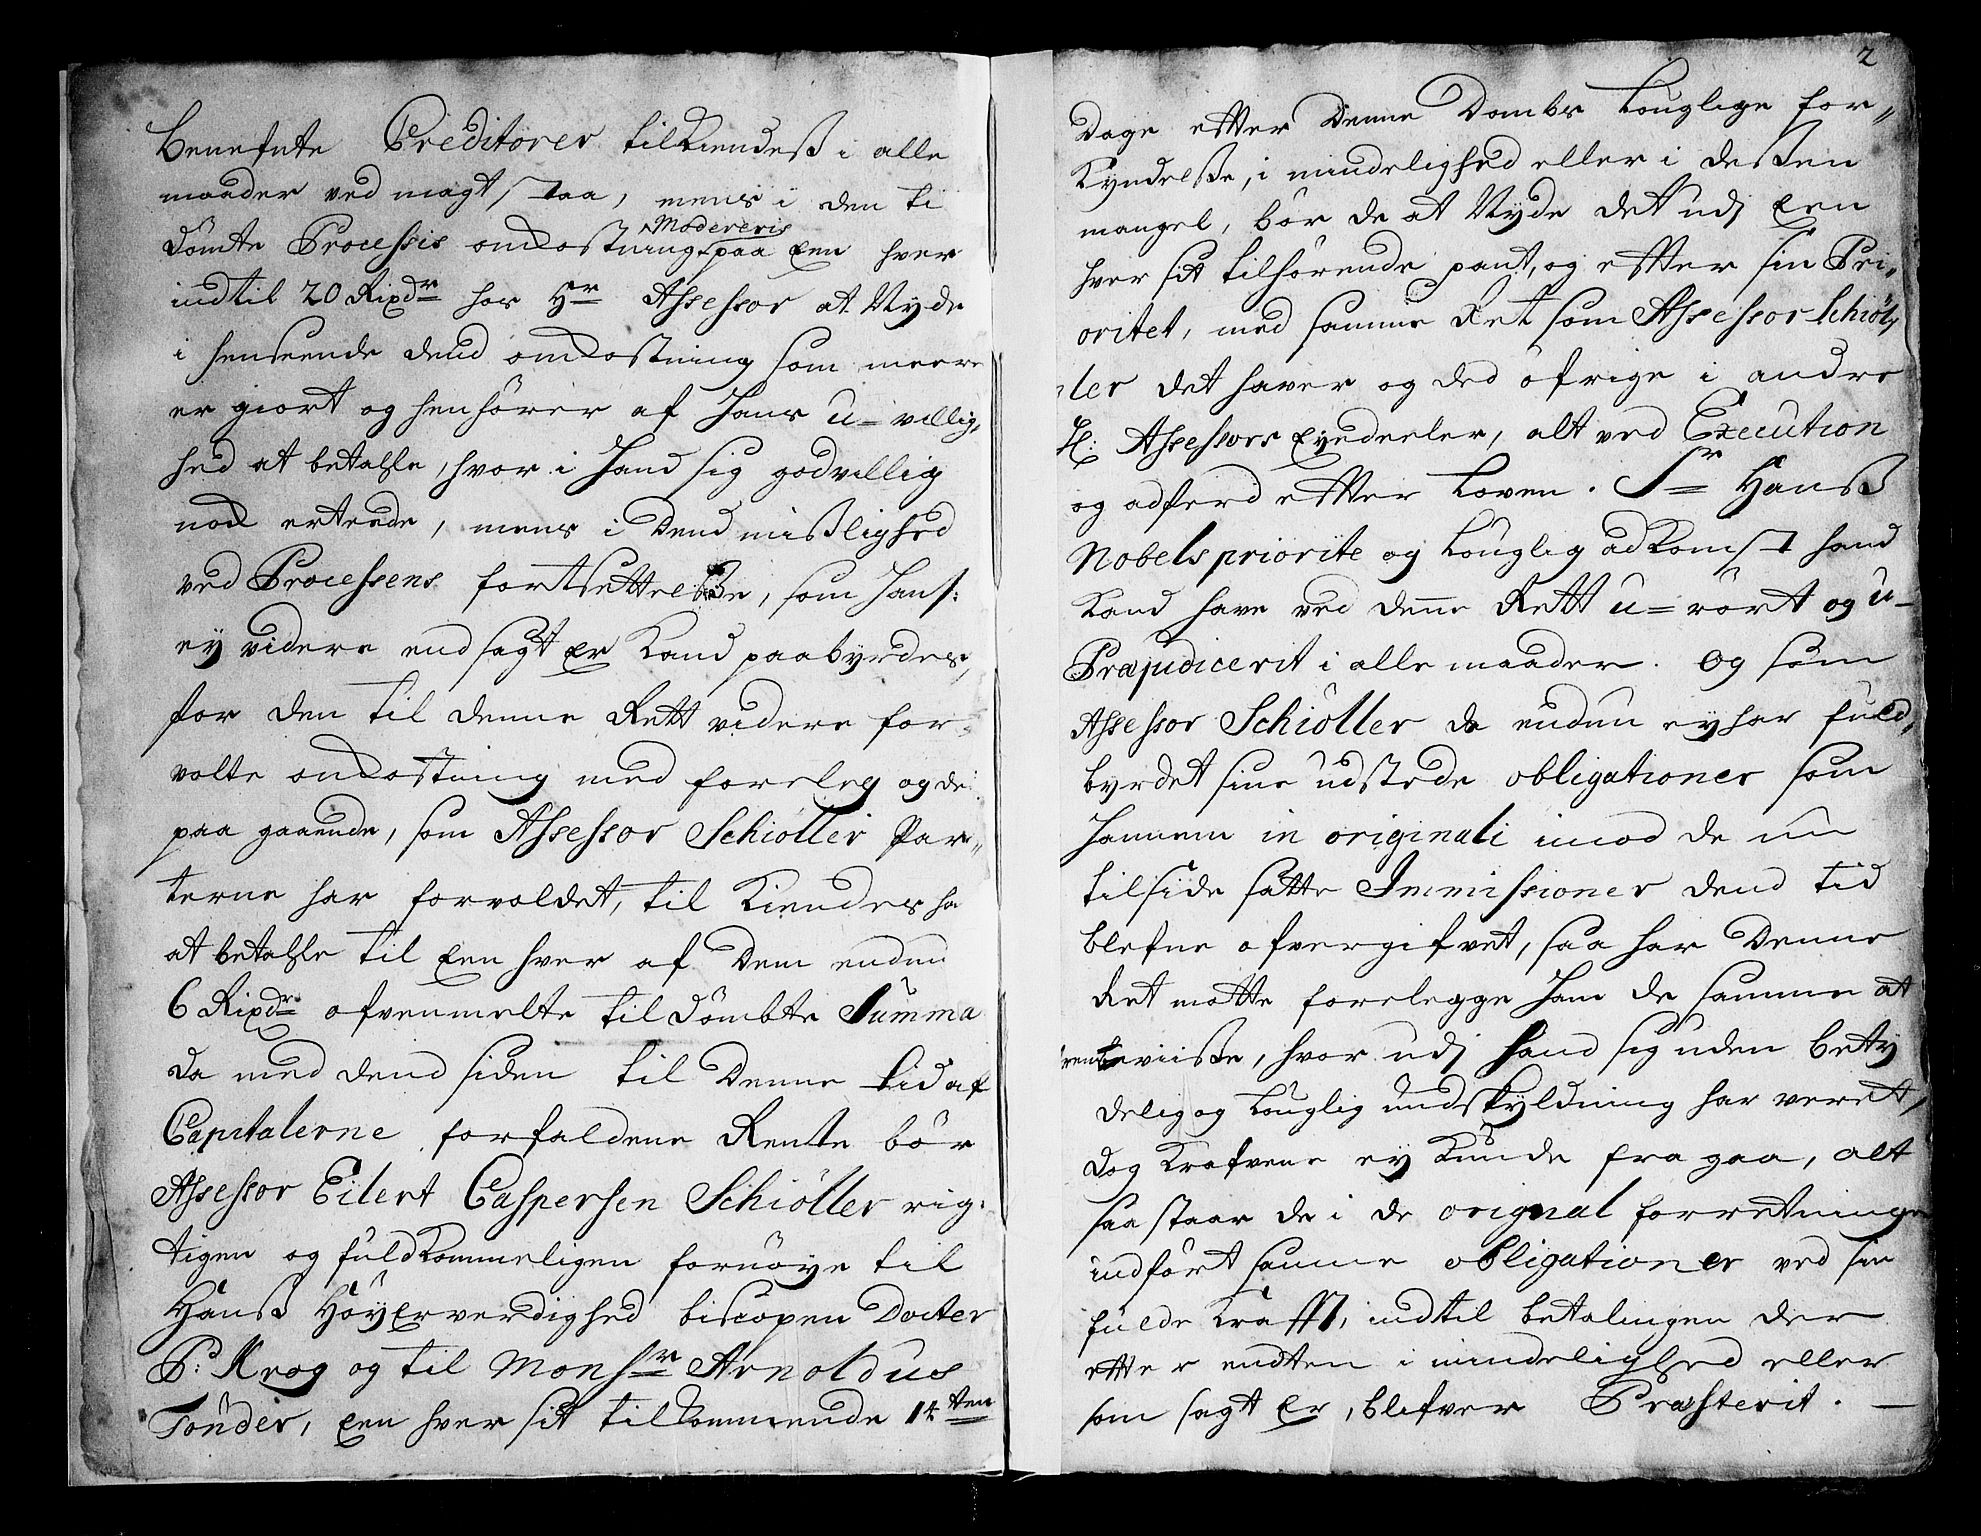 benefnte Creditorer tilkiendeß i alle
maader ved magt staa, mens i den til
dömte Processis omkostning Modereris paa Een hver
indtil 20 Rixdr hos Hr Assessor at Nyde
i henseende dend omkostning som meere
er giort og henhörer af Hans u-villig,
hed at betahle, hvor i Hand sig godvillig
nok erteede, mens i Dend mißlighed
ved Processens fortsettelße, som Hans:
ey videre end sagt er Kand paabyrdes,
for den til denne Rett videre for-
volte omkostning med foreleg og de
paa gaaende, som Assessor Schiöller Par„
terne har forvoldet, til Kiendes ha
at betahle til Een hver af Dem endnu
6 Rixdr ofvenmelte til dömbte Summa
da med dend siden til Denne tid af
Capitalerne forfaldene Rente bör
Assessor Eilert Caspersen Schiöller rig:
tigen og fuldkommeligen fornöye til
Hanß HöyErverdighed biscopen Docter
P: Krog og til Monsr Arnoldus
Tönder, Een hver sit tilkommende 14ten
2
Dage efter Denne Dombs Louglige for„
Kyndelße, i mindelighed eller i deßen
mangel, bör de at Nyde det udj Een
hver sit tilhörende pant, og efter sin Pri„
oritet, med samme Ret som Assessor Schiöl„
ler det haver og ded öfrige i andre
H: Assessors Eyendeeler, alt ved Execution
og adferd efter Loven. Sr Hanß
Nobels priorite og Louglig adkomst hand
Kand have ved denne Rett u-rört og u-
Præjudicerit i alle maader. Og som
Assessor Schiöller da endnu ey har fuld,
byrdet sine udstede obligationer som
Hannem in originali imod de nu
tilside satte Immissioner dend tid
blefne ofvergifvet, saa har Denne
Ret motte forelegge Ham de samme at
fremteviiße, hvor udj Hand sig uden bety
delig og Louglig undskyldning har veret,
dog Krafvene ey Kunde fra gaa, alt
saa staar de i de orignal forretninger
indfört samme obligationer ved sin
fulde Krafft, indtil betalingen der
efter endten i mindelighed eller
som sagt Er, blifver Præsterit. —